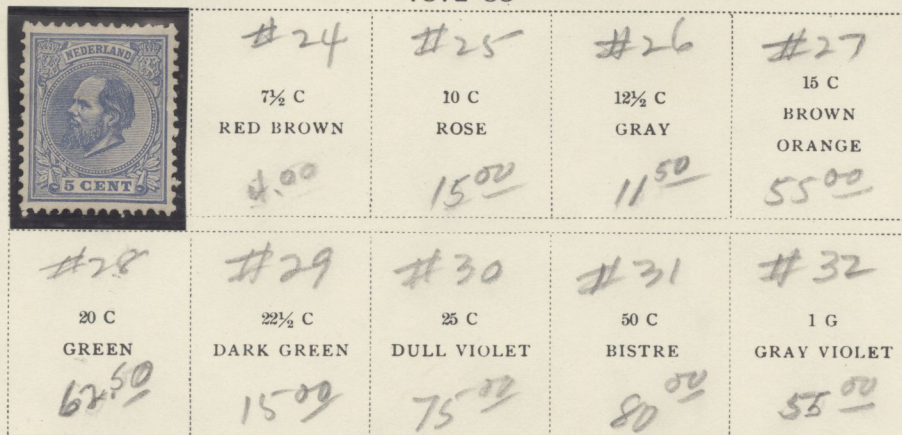 NEDERLAND
5 CENT
#24
7½ C
RED BROWN
4.00
#25
10 C
ROSE
15 00
#26
12½ C
GRAY
11 50
#27
15 C
BROWN
ORANGE
55 00
#28
20 C
GREEN
62.50
#29
22½ C
DARK GREEN
15 00
#30
25 C
DULL VIOLET
75 00
#31
50 C
BISTRE
80 00
#32
1 G
GRAY VIOLET
55 00